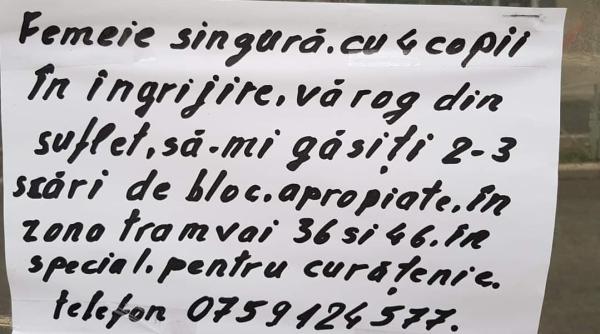 Femeie singură.cu 4 copii
în îngrijire.vă rog din
suflet.să-mi găsiți 2-3
scări de bloc.apropiate.în
zona tramvai 36 si 46.în
special.pentru curățenie.
telefon 0759124577.